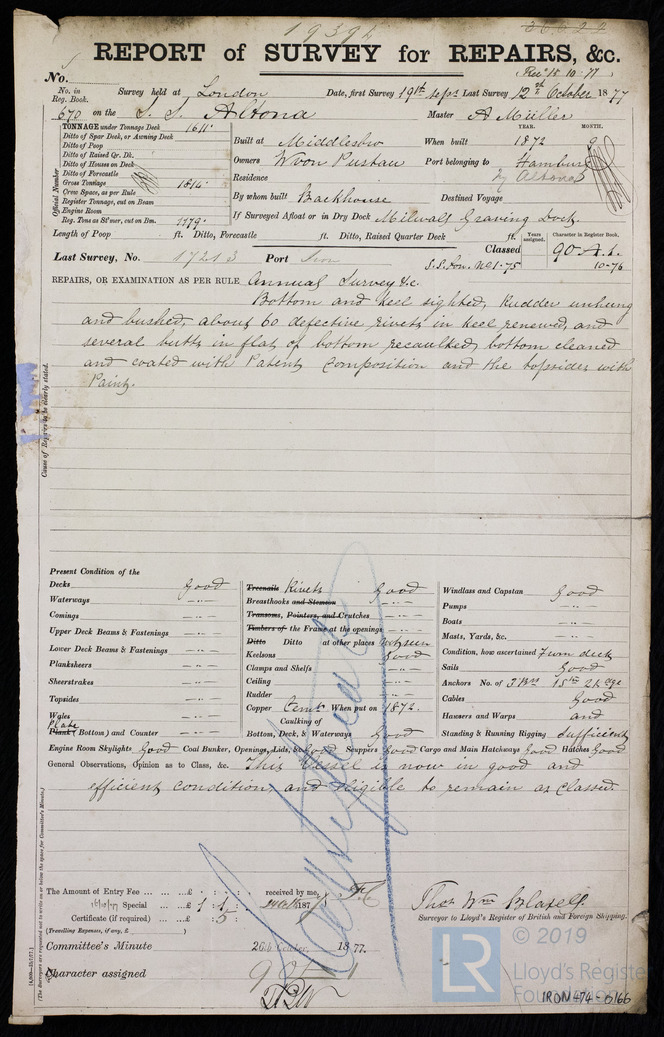 19394
36624
REPORT of SURVEY for REPAIRS, &c.
(Rec' 15.10.77)
No.
No. in Reg. Book. Survey held at London Date, first Survey 19th Sept Last Survey 12th October 1877
670 on the S. S. Altona Master A Müller
TONNAGE under Tonnage Deck 1611
Ditto of Spar Deck, or Awning Deck
Ditto of Poop
Ditto of Raised Qr. Dk.
Ditto of Houses on Deck
Ditto of Forecastle
Gross Tonnage 1814
Crew Space, as per Rule
Register Tonnage, cut on Beam
Engine Room
Reg. Tons as St'mer, cut on Bm. 1779
Official Number
YEAR. MONTH.
Built at Middlesbro When built 1872 9
Owners W von Pustau Port belonging to Hamburg
Residence by Altona
By whom built Backhouse Destined Voyage
If Surveyed Afloat or in Dry Dock Millwall Graving Dock.
Length of Poop ft. Ditto, Forecastle ft. Ditto, Raised Quarter Deck ft.
Years assigned. Character in Register Book.
Last Survey, No. 17213 Port Classed 90 A.1.
S.S. Lon. No 1-75 10-76
REPAIRS, OR EXAMINATION AS PER RULE Annual Survey &c.
Bottom and keel sighted, Rudder unhung
and bushed, about 60 defective rivets in keel renewed, and
several butts in flat of bottom recaulked, bottom cleaned
and coated with Patent Composition and the topsides with
Paint.
Cause of Repairs to be clearly stated.
Present Condition of the
Decks Good
Waterways — " —
Comings — " —
Upper Deck Beams & Fastenings — " —
Lower Deck Beams & Fastenings — " —
Planksheers — " —
Sheerstrakes — " —
Topsides — " —
Wales — " —
Plate
Plank (Bottom) and Counter — " —
Treenails Rivets Good
Breasthooks and Stemson — " —
Transoms, Pointers, and Crutches — " —
Timbers of the Frame at the openings — " —
Ditto Ditto at other places Not seen
Keelsons Good
Clamps and Shelfs — " —
Ceiling — " —
Rudder — " —
Copper Cemt. When put on 1872.
Caulking of
Bottom, Deck, & Waterways Good
Windlass and Capstan Good
Pumps — " —
Boats — " —
Masts, Yards, &c. — " —
Condition, how ascertained From deck
Sails Good
Anchors No. of 3 Brs 1 Stm 2 Kedge
Cables Good
Hawsers and Warps and
Standing & Running Rigging Sufficient
Engine Room Skylights Good Coal Bunker, Openings, Lids, &c Good Scuppers Good Cargo and Main Hatchways Good Hatches Good
General Observations, Opinion as to Class, &c. This Vessel is now in good and
efficient condition, and eligible to remain as Classed.
The Amount of Entry Fee ... ... ... £ : : received by me,
16/10/77 Special ... ... £ 1 : 1 : 187
Certificate (if required) ... ... £ : 5 :
(Travelling Expenses, if any, £ )
Surveyor to Lloyd's Register of British and Foreign Shipping.
Committee's Minute 26th October 1877.
Character assigned 90 A 1
(The Surveyors are requested not to write on or below the space for Committee's Minute.)
LR
© 2019
Lloyd's Register
Foundation
IRON 474-0166